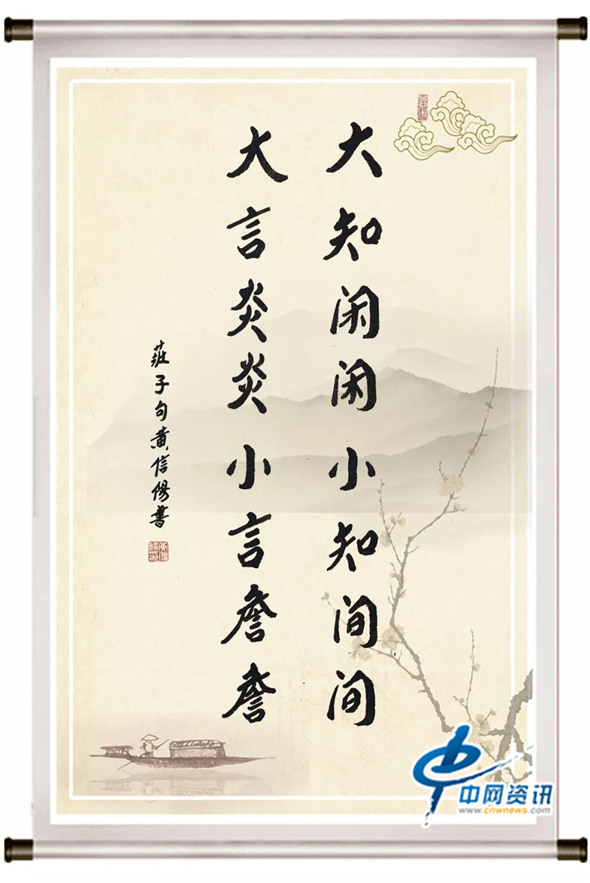 大知闲闲小知间间
大言炎炎小言詹詹
莊子句黄信陽書
中网资讯
www.cnwnews.com